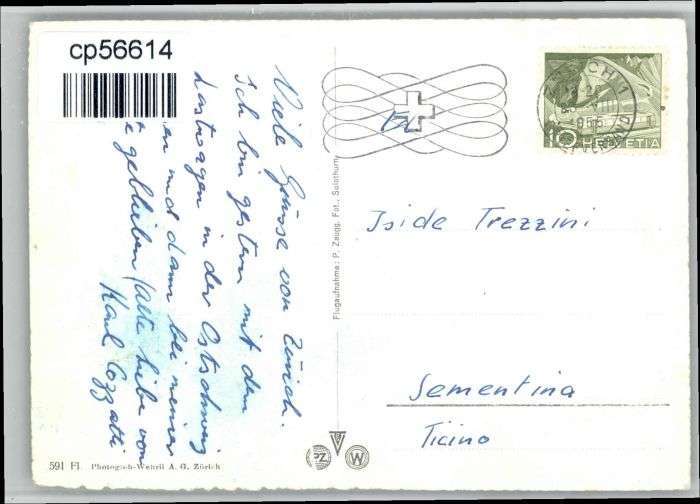 cp56614
Viele Grüsse von Zürich.
Ich bin gestern mit dem
Lastwagen in der Ostschweiz
en und dann bei meiner
te geblieben (alte Liebe von
Karl Cozzatti
591 Fl Photogch-Wehrli A. G. Zürich
Flugaufnahme: P. Zaugg, Fot., Solothurn
10 HELVETIA
Iside Trezzini
Sementina
Ticino
PZ
W